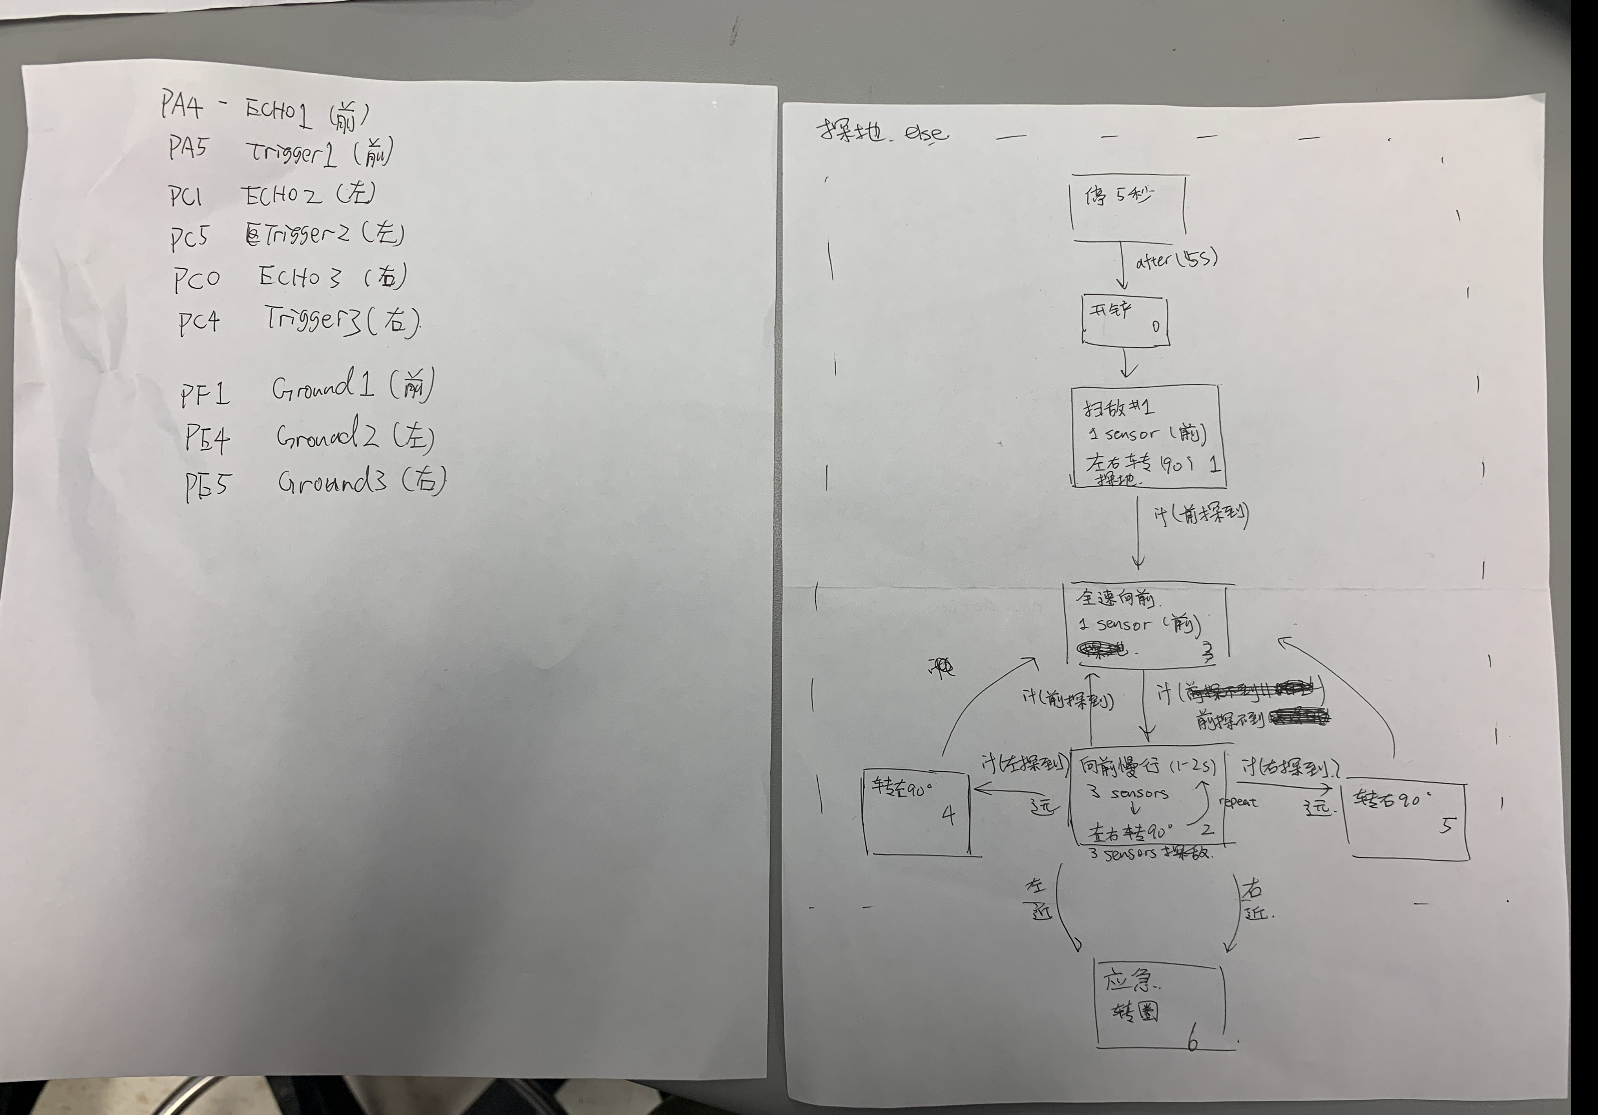 PA4 - ECHO1 (前)
PA5 Trigger1 (前)
PC1 ECHO2 (左)
PC5 Trigger2 (左)
PC0 ECHO3 (右)
PC4 Trigger3 (右)
PF1 Ground1 (前)
PE4 Ground2 (左)
PE5 Ground3 (右)
探地. else
停 5秒
after(5s)
开铲
0
扫敌#1
1 sensor (前)
左右转(90°) 1
探地.
if(前探到)
全速向前.
1 sensor (前)
3
if(前探到)
if(
前探不到
if(左探到)
3远
转左90°
4
向前慢行 (1-2s)
3 sensors
↓
左右转90° 2
3 sensors 探敌.
repeat
if(右探到)
3远.
转右90°
5
左
近
右
近.
应急.
转圈
6